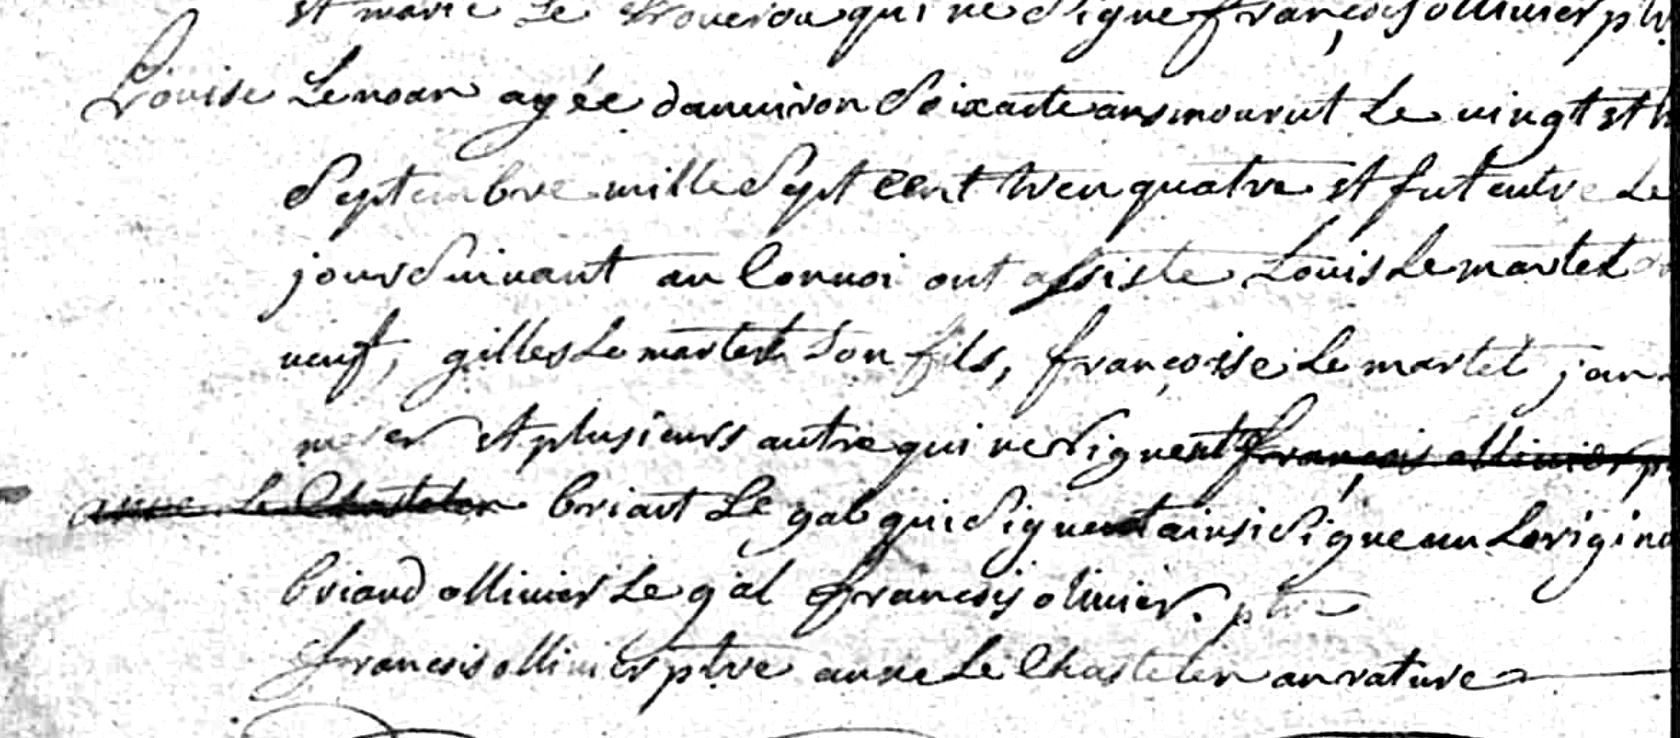 et marie Le qui ne signe françois ollivier ptr
Louise Lenoan agée danviron soixante ans mourut Le vingt et
septembre mille sept cent tren quatre et fut entre Le
jour suivant au Convoi ont assiste Louis Le martet
neuf, gilles Le martet son fils, françoise Le martet jan-
et plusieurs autre qui ne signent françois ollivier p
anne Le Chasteler briant Le gal qui signent ainsi signe un Lorigina
briand ollivier Le gal françois olivier. ptr
françois ollivier ptre anne Le Chasteler en rature